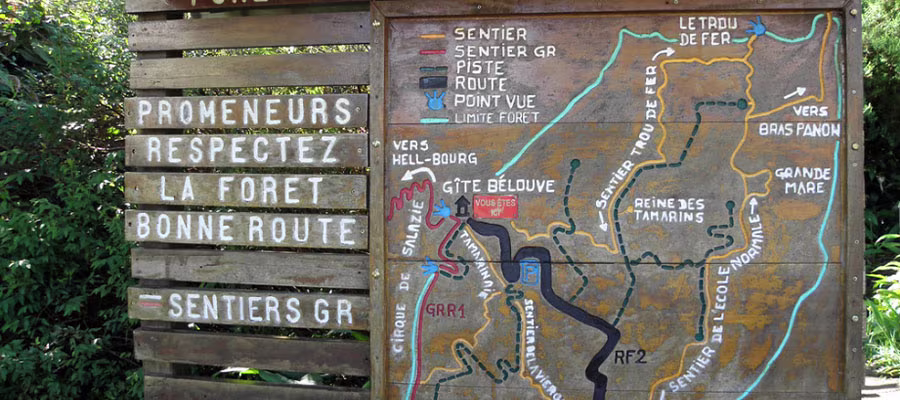 PROMENEURS
RESPECTEZ
LA FORET
BONNE ROUTE
SENTIERS GR
SENTIER
SENTIER GR
PISTE
ROUTE
POINT VUE
LIMITE FORET
LE TROU
DE FER
VERS
BRAS PANON
VERS
HELL-BOURG
GÎTE BÉLOUVE
VOUS ÊTES
ICI
SENTIER TROU DE FER
REINE DES
TAMARINS
GRANDE
MARE
CIRQUE DE SALAZIE
GRR1
RF2
SENTIER DE L'ECOLE NORMALE